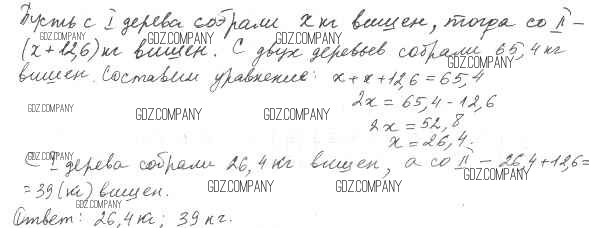 Пусть с I дерева собрали x кг вишен, тогда со II –
(x + 12,6) кг вишен. С двух деревьев собрали 65,4 кг
вишен. Составим уравнение: x + x + 12,6 = 65,4
2x = 65,4 - 12,6
2x = 52,8
x = 26,4.
С I дерева собрали 26,4 кг вишен, а со II – 26,4 + 12,6 =
= 39 (кг) вишен.
Ответ: 26,4 кг; 39 кг.
GDZ.COMPANY
GDZ.COMPANY
GDZ.COMPANY
GDZ.COMPANY
GDZ.COMPANY
GDZ.COMPANY
GDZ.COMPANY
GDZ.COMPANY
GDZ.COMPANY
GDZ.COMPANY
GDZ.COMPANY
GDZ.COMPANY
GDZ.COMPANY
GDZ.COMPANY